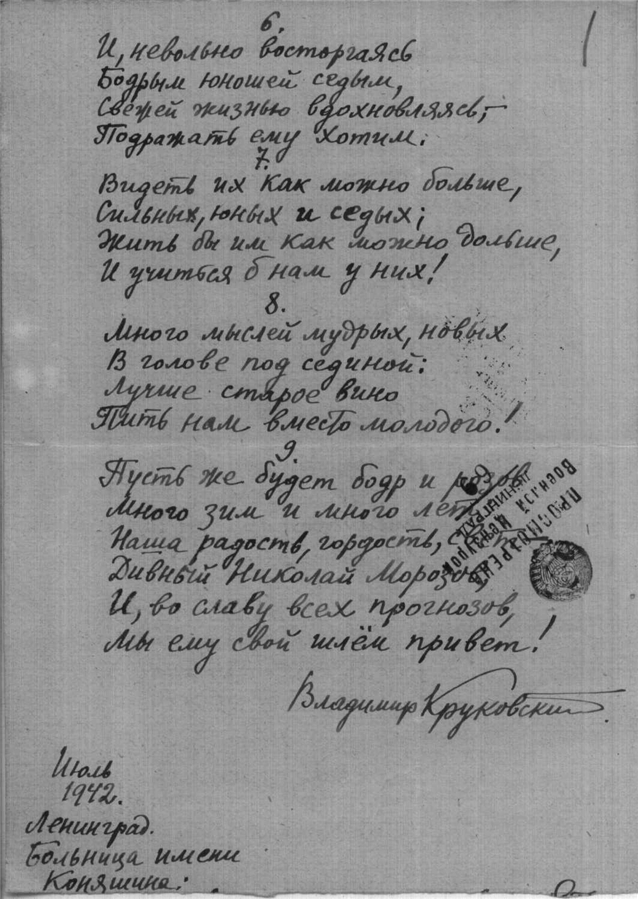 6.
И, невольно восторгаясь
Бодрым юношей седым,
Свежей жизнью вдохновляясь,–
Подражать ему хотим.
7.
Видеть их как можно больше,
Сильных, юных и седых;
Жить бы им как можно дольше,
И учиться б нам у них!
8.
Много мыслей мудрых, новых
В голове под сединой:
Лучше старое вино
Пить нам вместо молодого!
9.
Пусть же будет бодр и розов
Много зим и много лет
Наша радость, гордость,
Дивный Николай Морозов,
И, во славу всех прогнозов,
Мы ему свой шлём привет!
Владимир Круковский
ПРОСМОТРЕНО
Военной Цензурой
ЛЕНИНГРАД
Июль
1942.
Ленинград.
Больница имени
Коняшина.